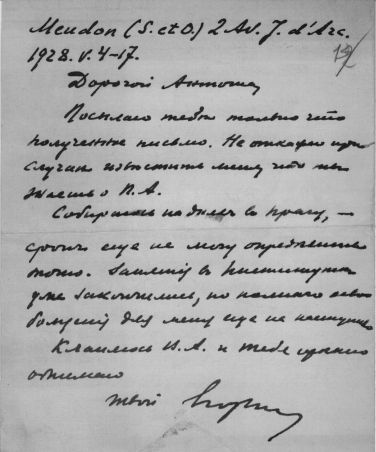 Meudon (S. et O.) 2 Av. J. d'Arc.
1928. V. 4-17.
Дорогой Антоша,
Посылаю тебе только что
полученное письмо. Не откажи при
случае известить меня, что
знаешь о П. А.
Собираюсь на днях в Прагу, —
сроки еще не могу определить
точно. Занятия в Институте
уже закончились, но
для меня еще не наступило
Кланяюсь И. А. и тебя крепко
обнимаю
твой